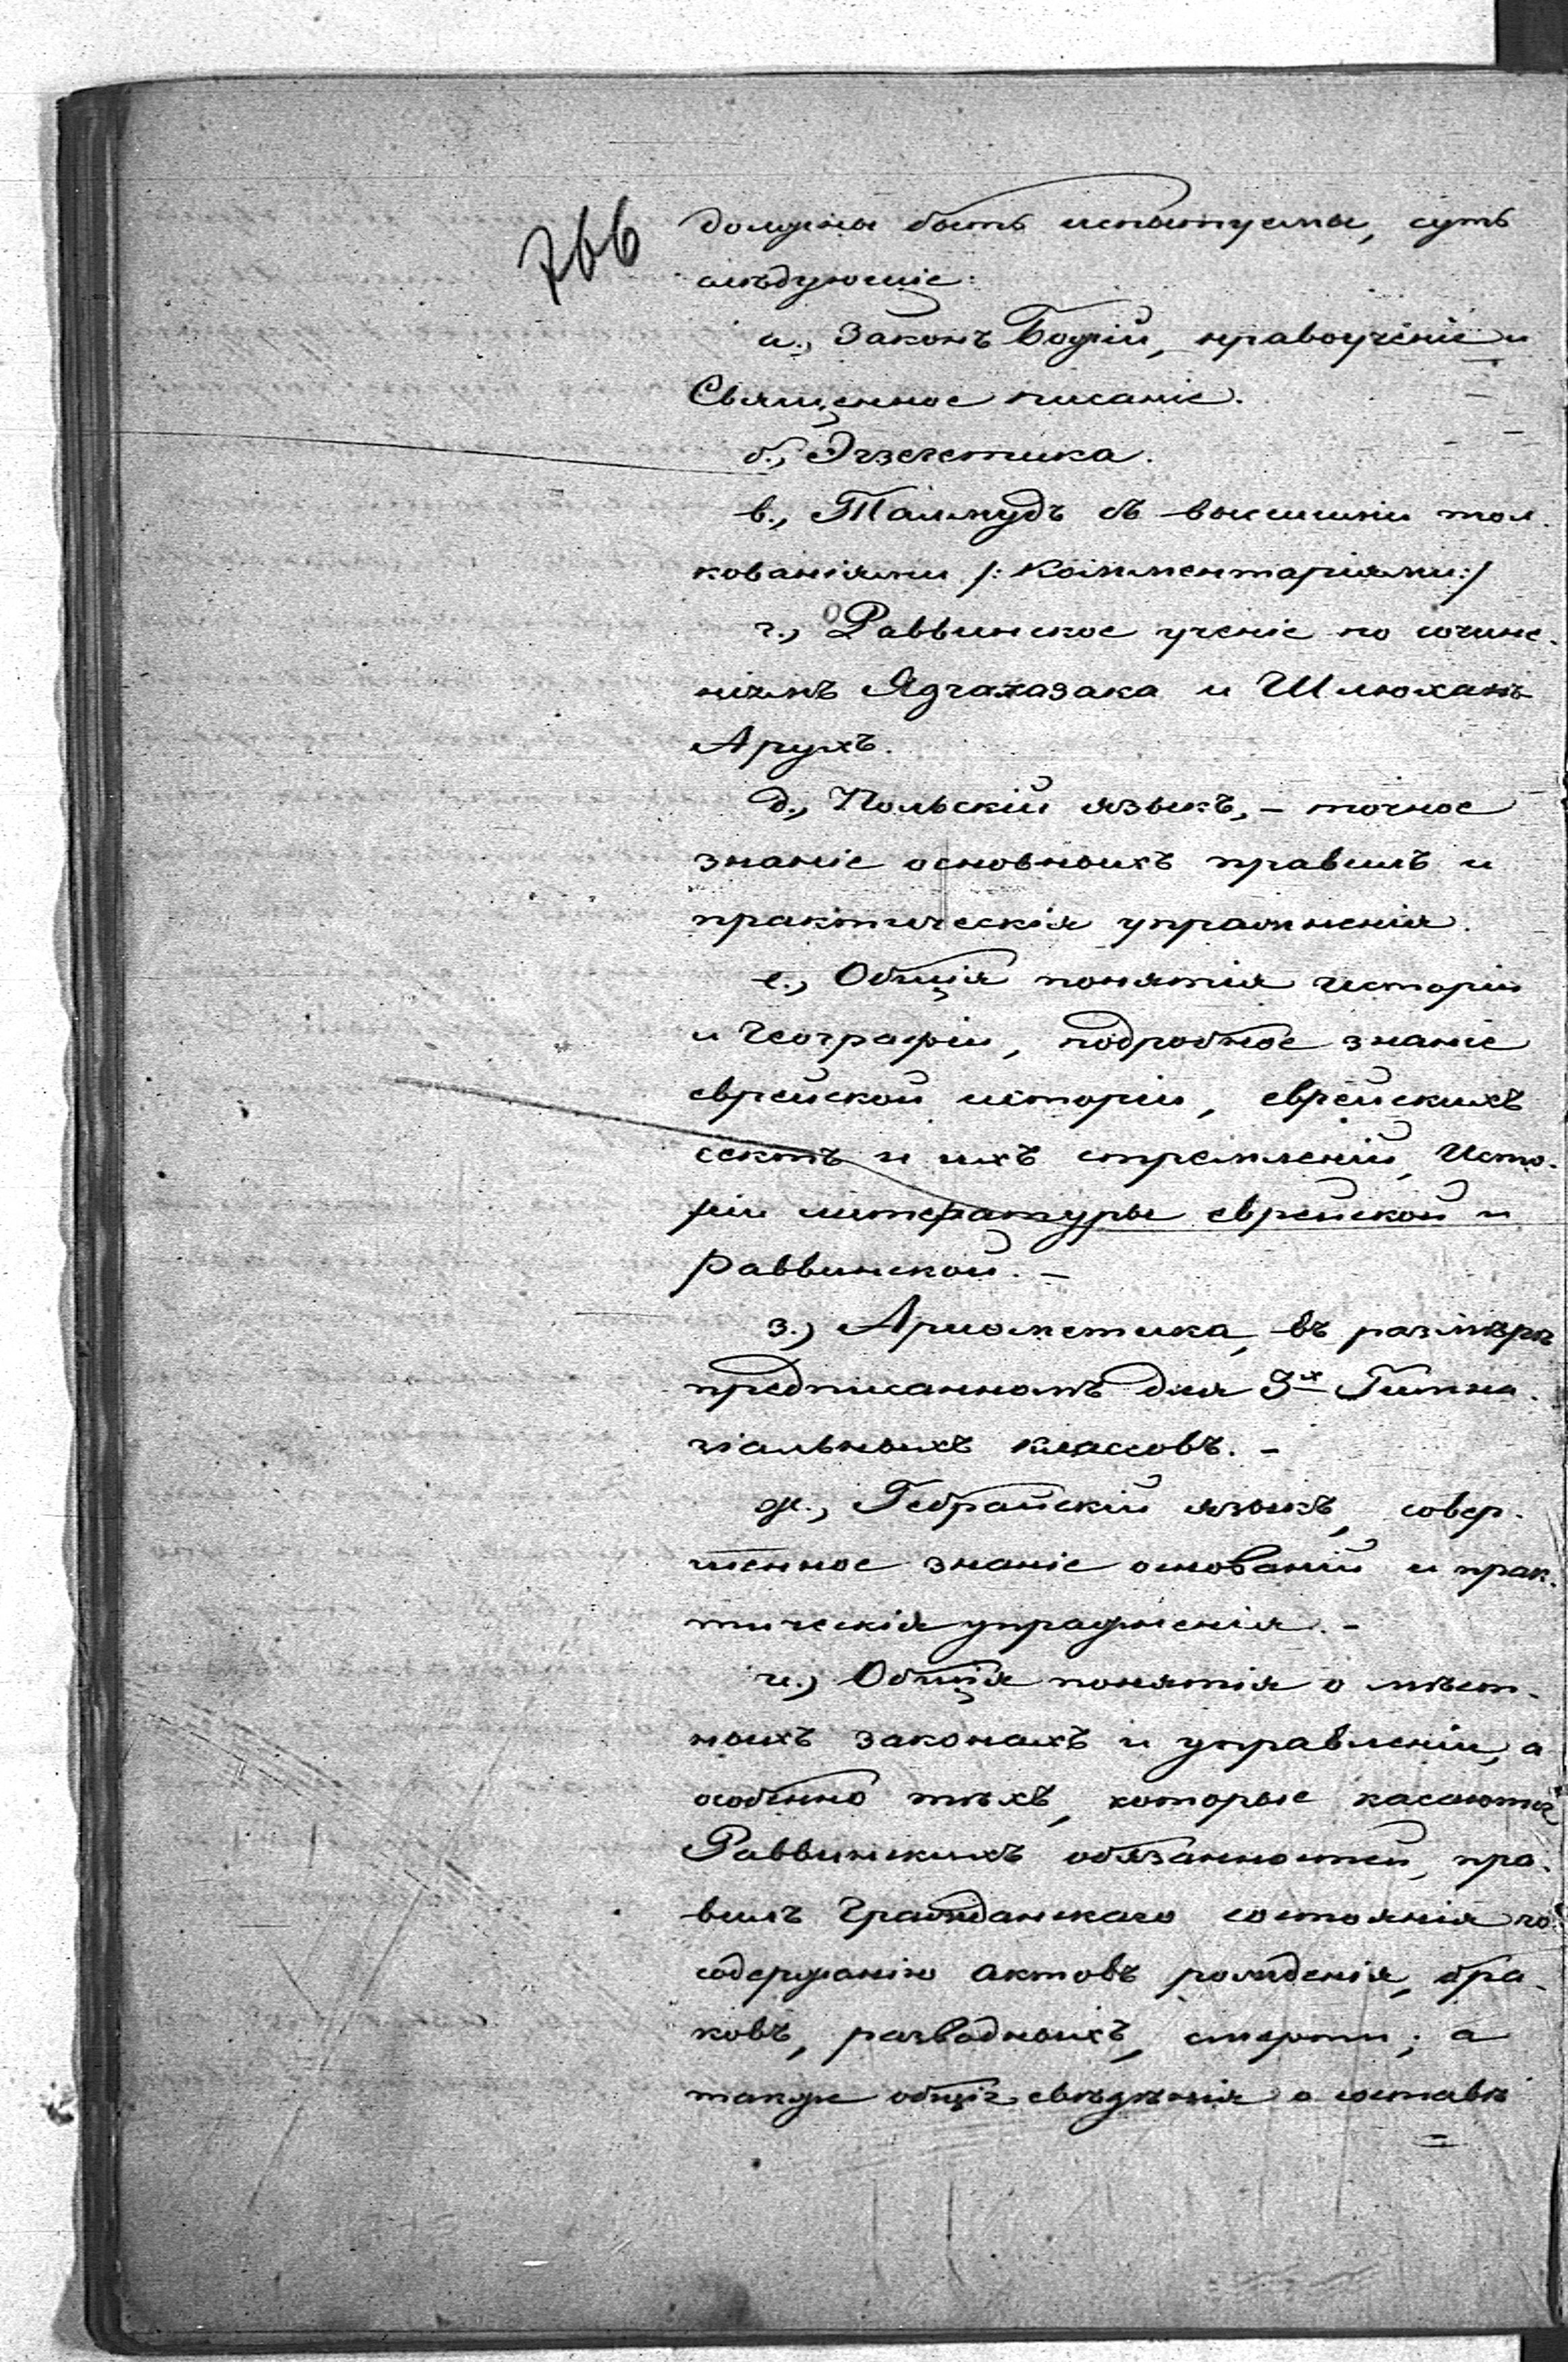 766
должны быть испытуемы, суть
слѣдующіе:
а., Законъ Божій, нравоученіе и
Священное писаніе.
б., Эгзегетика.
в., Талмудъ съ высшими тол-
кованіями /: Комментаріями:/
г., Раввинское ученіе по сочине-
ніямъ Ядгахазака и Шлюханъ
Арухъ.
д., Польскій языкъ, – точное
знаніе основныхъ правилъ и
практическія упражненія.
е., Общія понятія исторіи
и Географіи, подробное знаніе
еврейской исторіи, еврейскихъ
сектъ и ихъ стремленій, Исто-
ріи литературы еврейской и
раввинской. –
з., Ариѳметика, въ размѣрѣ
предписанномъ для 3х Гимна-
зіальныхъ классовъ. –
ж., Гебрайскій языкъ, совер-
шенное знаніе основаній и прак-
тическія упражненія. –
и., Общія понятія о мѣст-
ныхъ законахъ и управленіи, а
особенно тѣхъ, которые касаются
Раввинскихъ обязанностей, пра-
вилъ Гражданскаго состоянія по
содержанію актовъ рожденія, бра-
ковъ, разводныхъ, смерти; а
также общія свѣдѣнія о составѣ